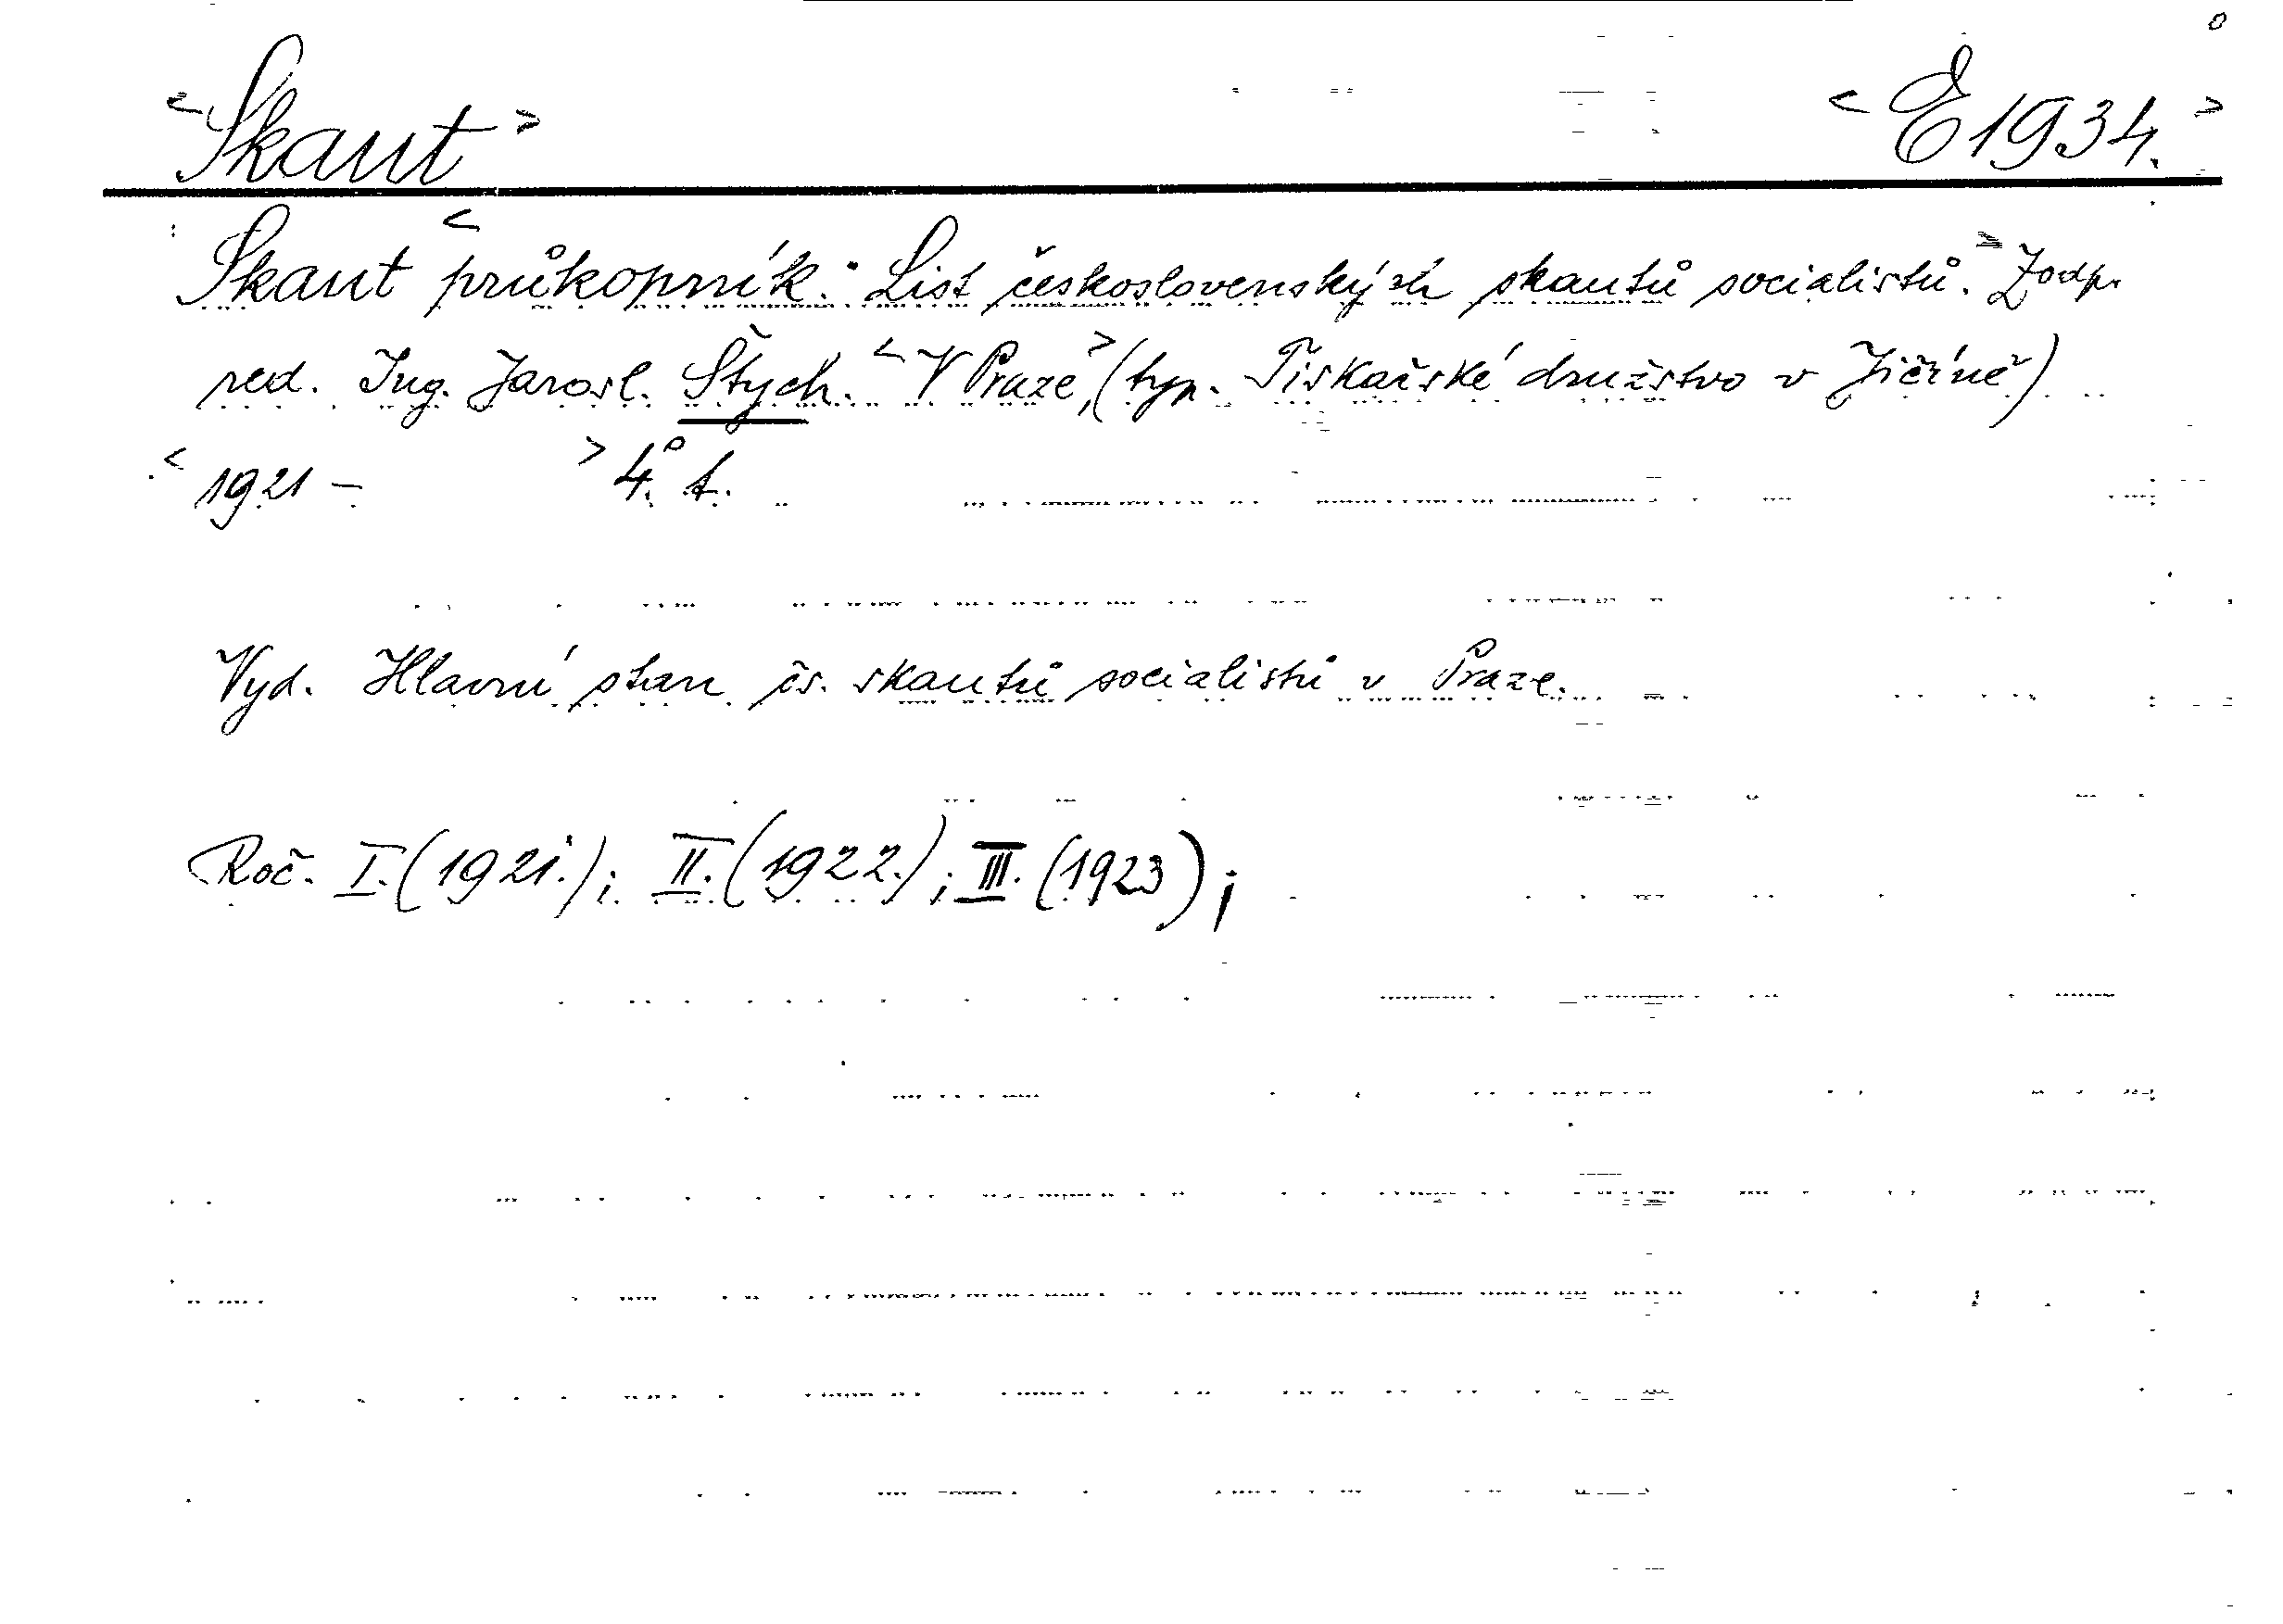 <Skaut> <E 1934.>
Skaut <průkopník: List československých skautů socialistů.> Zodp.
red. Ing. Jarosl. Štych. <V Praze,> (typ. Tiskařské družstvo v Jičíně)
<1921 - > 4.° t.
Vyd. Hlavní stan čs. skautů socialistů v Praze.
Roč. I. (1921.); II. (1922.); III. (1923);